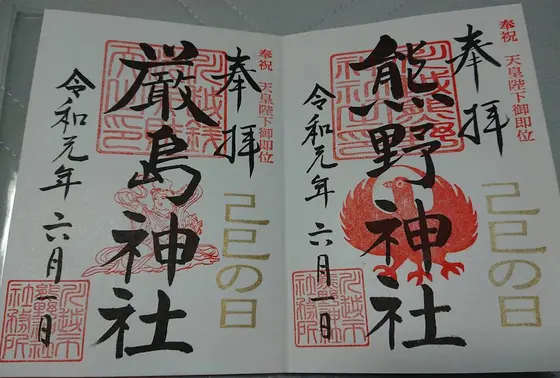 奉祝 天皇陛下御即位
奉拝
熊野神社
己巳の日
令和元年 六月一日
奉祝 天皇陛下御即位
奉拝
厳島神社
己巳の日
令和元年 六月一日